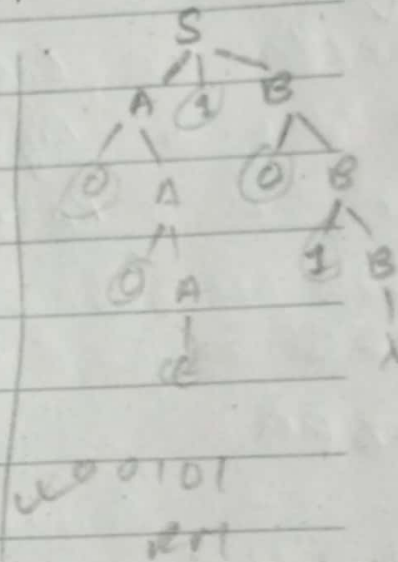 S
A 1 B
0 A 0 B
0 A 1 B
00101